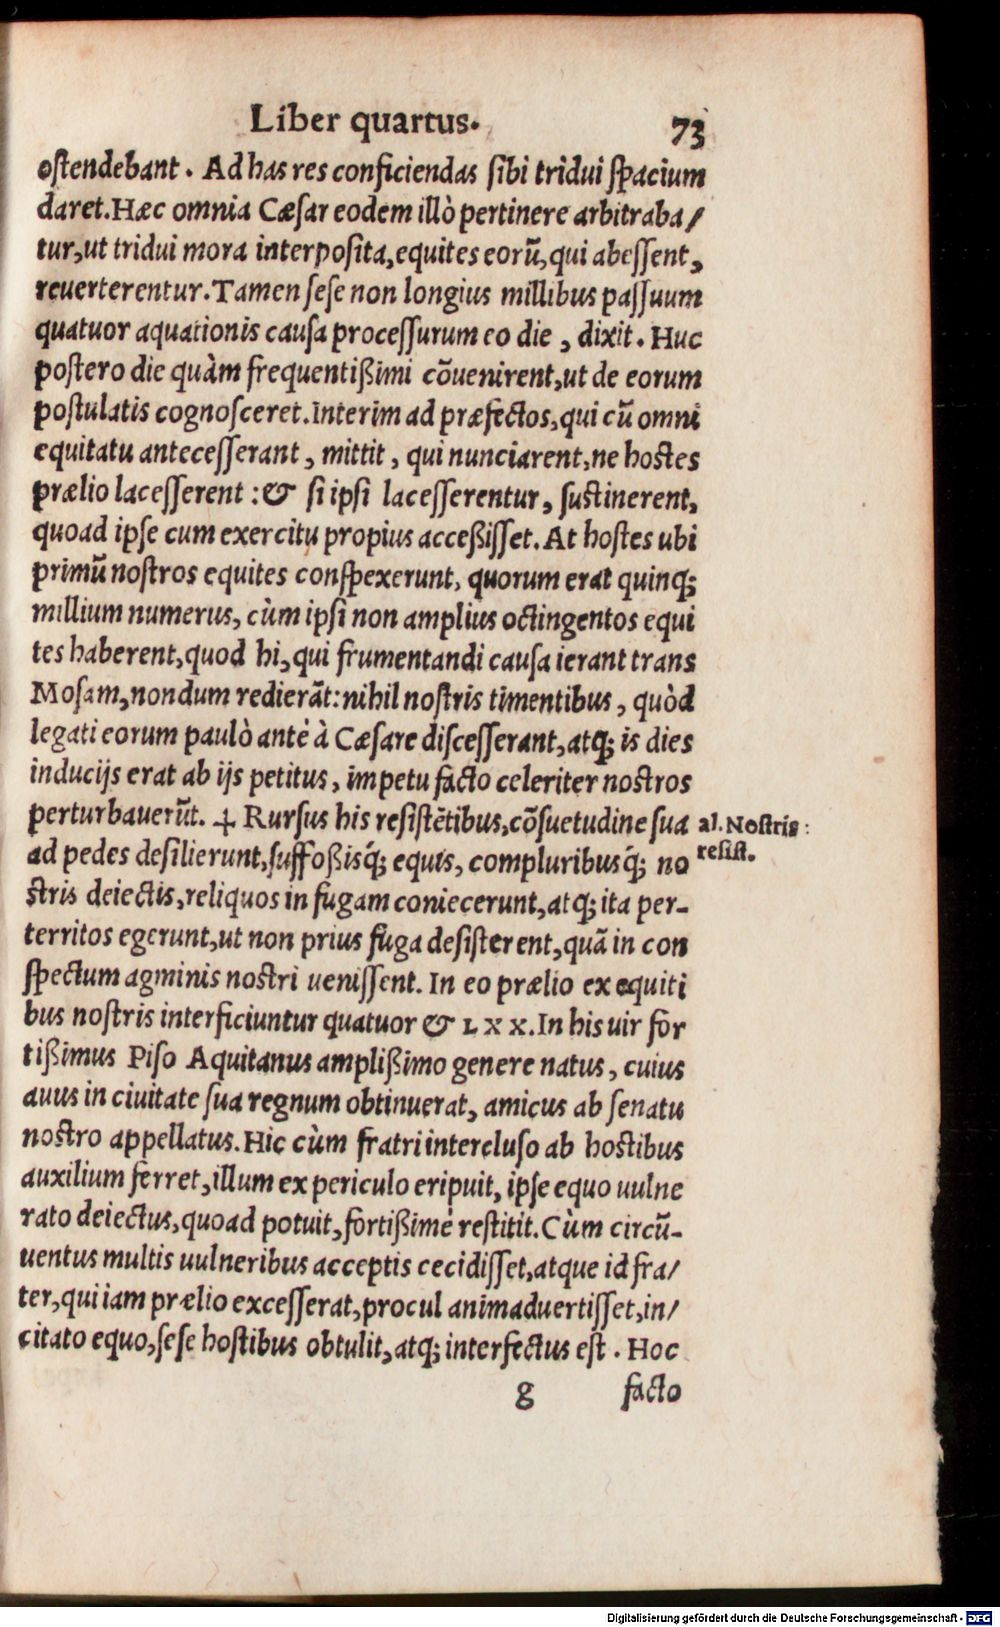 Liber quartus.
73
ostendebant. Ad has res conficiendas sibi tridui spacium
daret. Hæc omnia Cæsar eodem illò pertinere arbitraba/
tur, ut tridui mora interposita, equites eorũ, qui abessent,
reuerterentur. Tamen sese non longius millibus passuum
quatuor aquationis causa processurum eo die, dixit. Huc
postero die quàm frequentißimi cõuenirent, ut de eorum
postulatis cognosceret. Interim ad præfectos, qui cũ omni
equitatu antecesserant, mittit, qui nunciarent, ne hostes
prælio lacesserent: & si ipsi lacesserentur, sustinerent,
quoad ipse cum exercitu propius acceßisset. At hostes ubi
primũ nostros equites conspexerunt, quorum erat quinq;
millium numerus, cùm ipsi non amplius octingentos equi
tes haberent, quod hi, qui frumentandi causa ierant trans
Mosam, nondum redierãt: nihil nostris timentibus, quòd
legati eorum paulò antè à Cæsare discesserant, atq; is dies
inducijs erat ab ijs petitus, impetu facto celeriter nostros
perturbauerũt. ⍭ Rursus his resistẽtibus, cõsuetudine sua
al. Nostris:
resist.
ad pedes desilierunt, suffoßisq́; equis, compluribusq́; no
stris deiectis, reliquos in fugam coniecerunt, atq; ita per-
territos egerunt, ut non prius fuga desisterent, quã in con
spectum agminis nostri uenissent. In eo prælio ex equiti
bus nostris interficiuntur quatuor & LXX. In his uir for
tißimus Piso Aquitanus amplißimo genere natus, cuius
auus in ciuitate sua regnum obtinuerat, amicus ab senatu
nostro appellatus. Hic cùm fratri intercluso ab hostibus
auxilium ferret, illum ex periculo eripuit, ipse equo uulne
rato deiectus, quoad potuit, fortißimè restitit. Cùm circũ-
uentus multis uulneribus acceptis cecidisset, atque id fra/
ter, qui iam prælio excesserat, procul animaduertisset, in/
citato equo, sese hostibus obtulit, atq; interfectus est. Hoc
g
facto
Digitalisierung gefördert durch die Deutsche Forschungsgemeinschaft - DFG